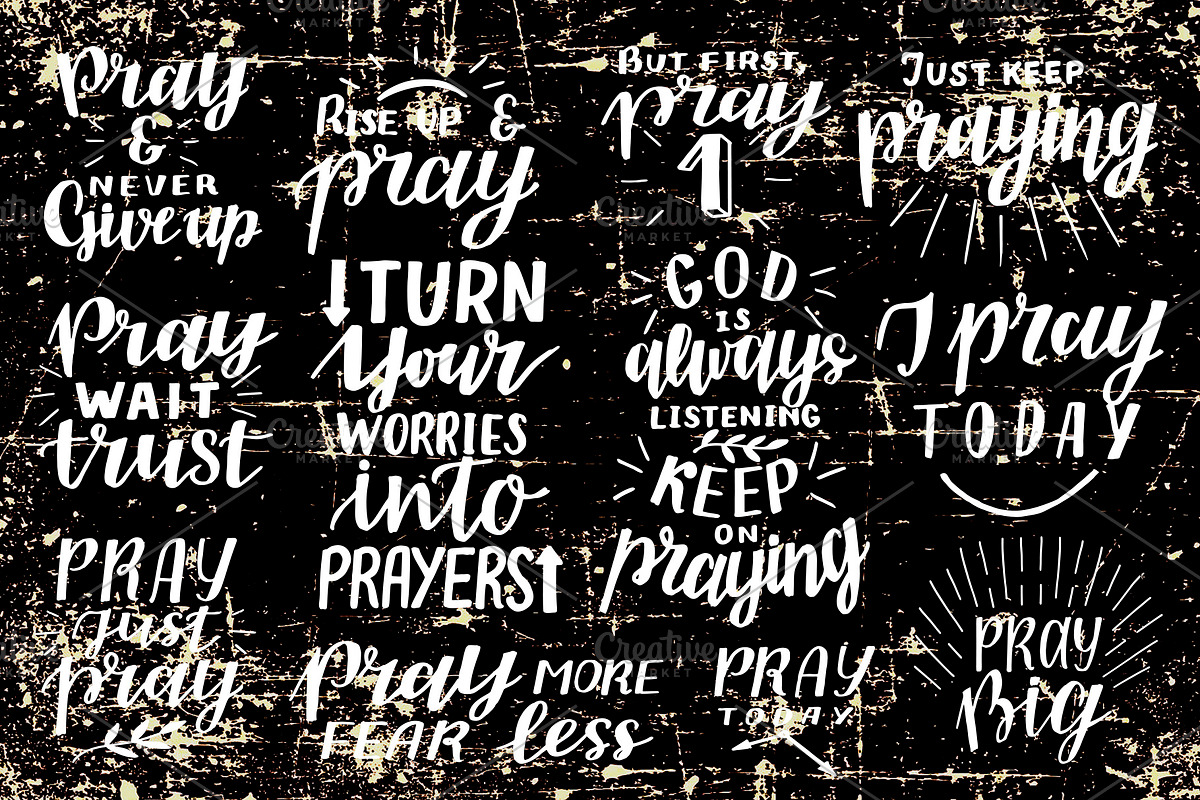 Pray
&
NEVER
Give up
Pray
WAIT
trust
PRAY
Just
pray
RISE UP &
pray
TURN
Your
WORRIES
into
PRAYERS
Pray MORE
FEAR less
BUT FIRST,
pray
1
GOD
IS
always
LISTENING
KEEP
ON
praying
PRAY
TODAY
JUST KEEP
praying
I pray
TODAY
PRAY
Big
Creative
MARKET